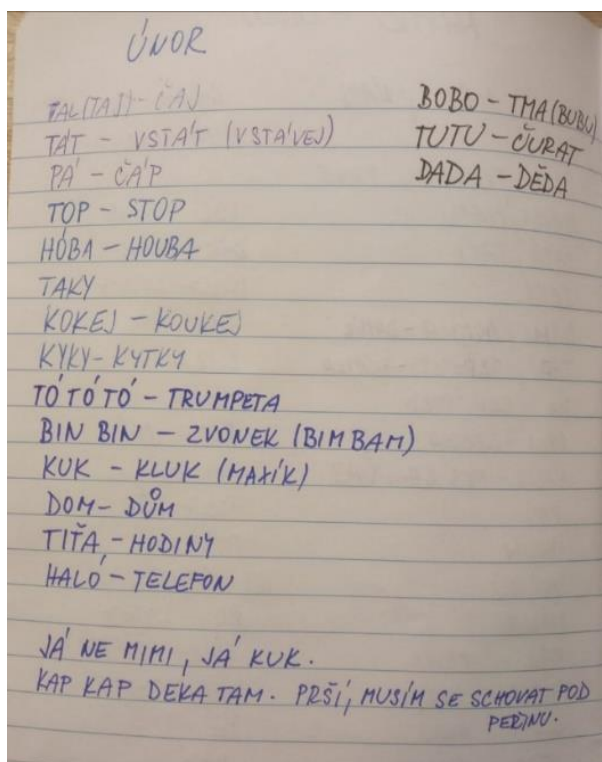 ÚNOR
TAL(TAJ) - ČAJ
TÁT - VSTÁT (VSTÁVEJ)
PÁ - ČÁP
TOP - STOP
HÓBA - HOUBA
TAKY
KOKEJ - KOUKEJ
KYKY - KYTKY
TÓ TÓ TÓ - TRUMPETA
BIN BIN - ZVONEK (BIM BAM)
KUK - KLUK (MAXÍK)
DOM - DŮM
TIŤA - HODINY
HALÓ - TELEFON
JÁ NE MIMI, JÁ KUK.
KAP KAP DEKA TAM. PRŠÍ, MUSÍM SE SCHOVAT POD
PEŘINU.
BOBO - TMA (BUBU)
TUTU - ČURAT
DADA - DĚDA